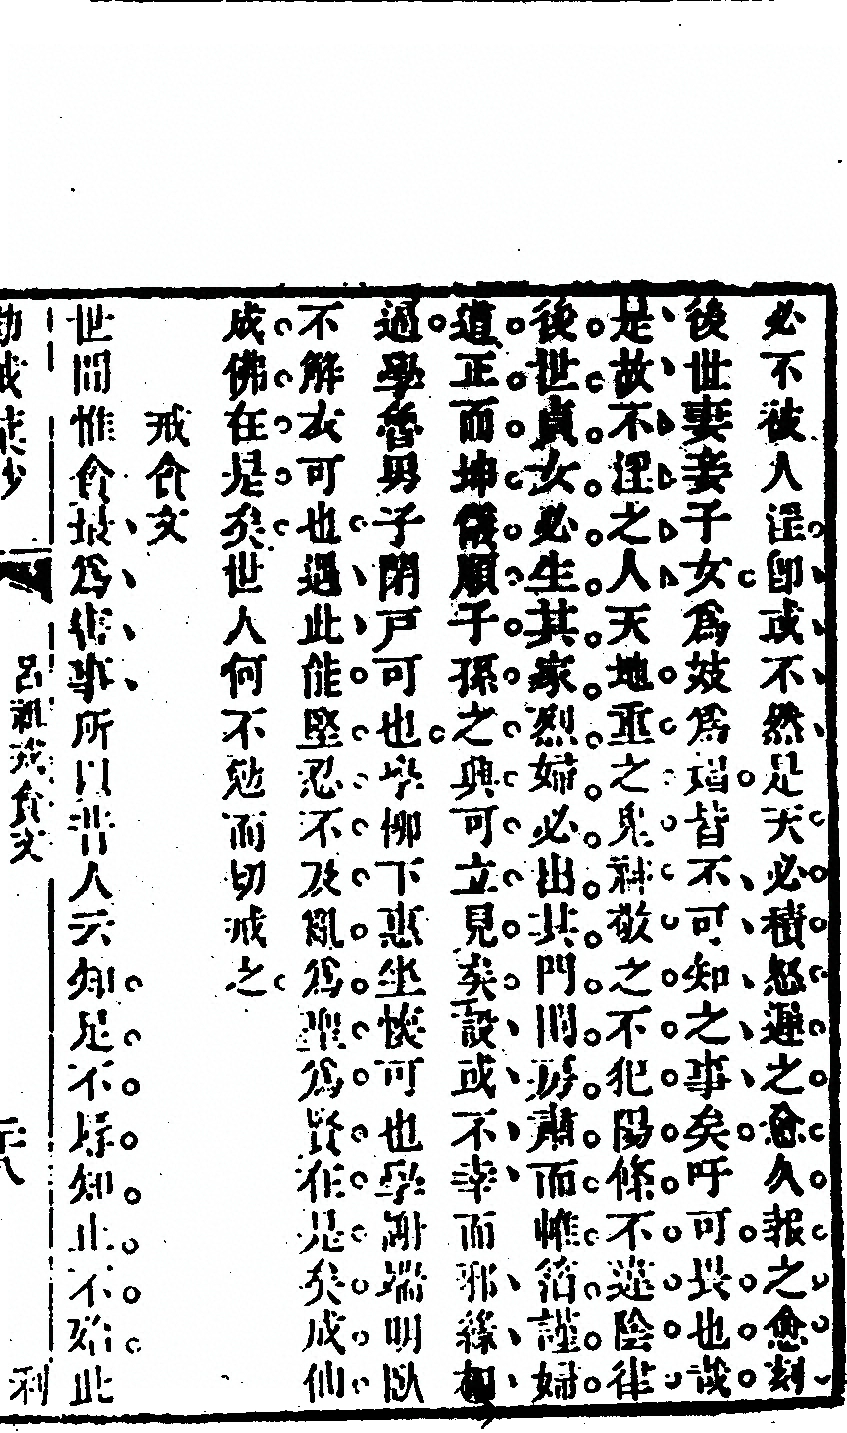 必不被人淫卽或不然是天必積怒遲之愈久報之愈刻
後世妻妾子女爲妓爲娼皆不可知之事矣吁可畏也哉
是故不淫之人天地重之鬼神敬之不犯陽條不遭陰律
後世貞女必生其家烈婦必出其門閨房肅而帷箔謹婦
道正而坤儀順子孫之興可立見矣設或不幸而邪緣相
過學魯男子閉戶可也學柳下惠坐懷可也學謝端明臥
不解衣可也過此能堅忍不及亂爲聖爲賢在是矣成仙
成佛在是矣世人何不勉而切戒之
戒貪文
世間惟貪最爲害事所以昔人云知足不辱知止不殆此
呂祖戒貪文
利